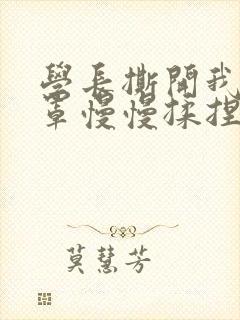 學長撕開我
罩慢慢揉捏
莫慧芳